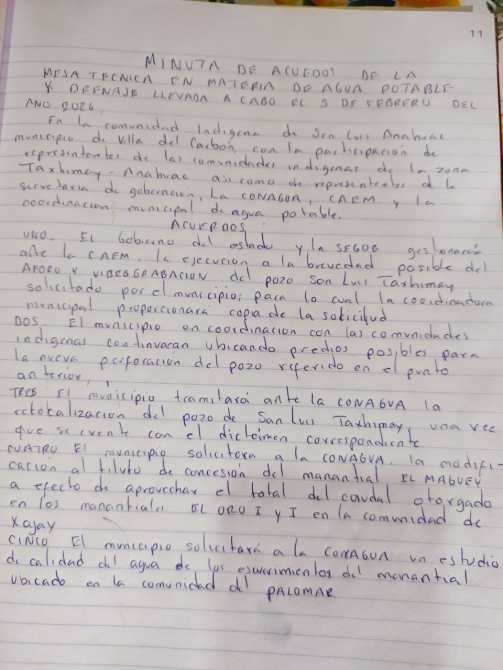 11
MINUTA DE ACUERDOS DE LA
MESA TECNICA EN MATERIA DE AGUA POTABLE
Y DRENAJE LLEVADA A CABO EL 5 DE FEBRERO DEL
AÑO 2026
En la comunidad Indigena de San Luis Anahuac
municipio de Villa del Carbon, con la participacion de
representantes de las comunidades indigenas de la zona
Taxhimay - Anahuac asi como de representantes de la
secretaria de gobernacion, La CONAGUA, CAEM y la
coordinacion municipal de agua potable.
ACUERDOS
UNO. El Gobierno del estado y la SEGOB gestionarán
ante la CAEM, la ejecucion a la brevedad posible del
AFORO Y VIDEOGRABACION del pozo San Luis Taxhimay
solicitado por el municipio; para lo cual la coordinadora
municipal proporcionará copia de la solicitud
DOS. El municipio en coordinacion con las comunidades
indigenas continuaran ubicando predios posibles para
la nueva perforacion del pozo referido en el punto
anterior,
TRES El municipio tramitará ante la CONAGUA la
relocalizacion del pozo de San Luis Taxhimay, una vez
que se cuente con el dictamen correspondiente
CUATRO El municipio solicitara a la CONAGUA, la modifi-
cación al titulo de concesion del manantial EL MAGUEY
a efecto de aprovechar el total del caudal otorgado
en los manantiales EL ORO I y I en la comunidad de
Xajay
CINCO El municipio solicitará a la CONAGUA un estudio
de calidad del agua de los escurrimientos del manantial
ubicado en la comunidad del PALOMAR